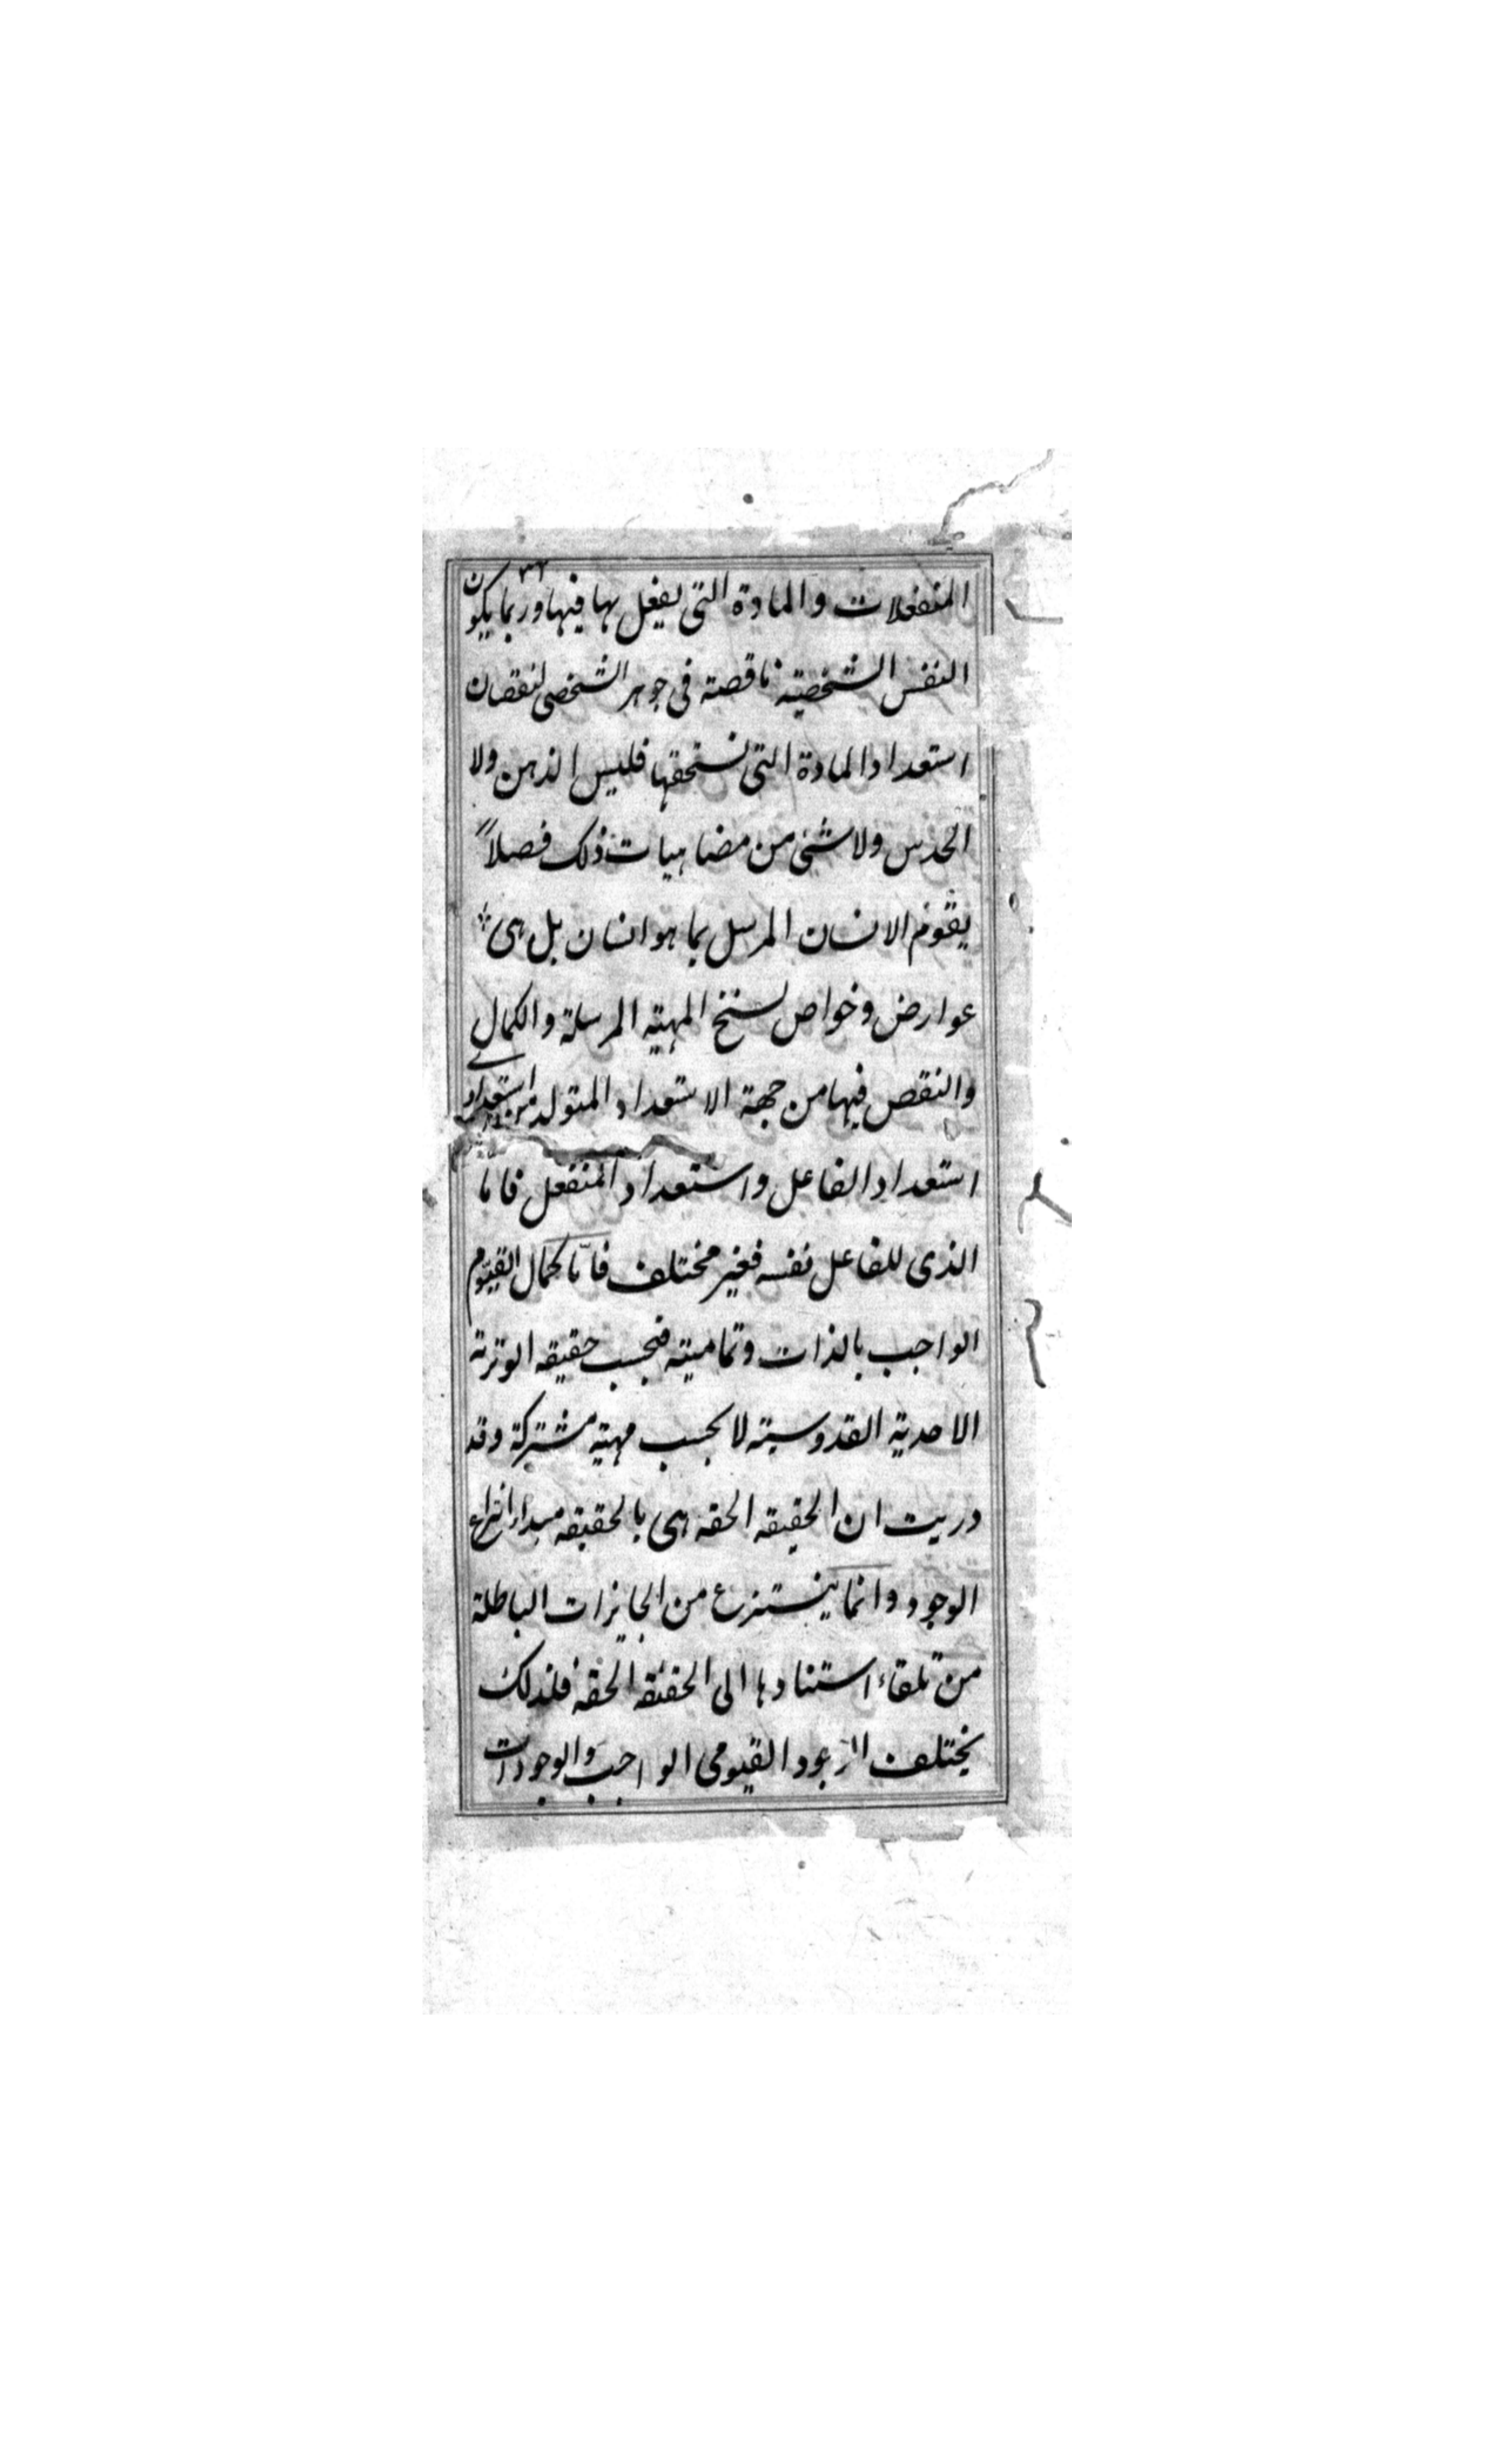 ٣٢
المنفعلات والمادة التى يفعل بها فيها وربما يكون
النفس الشخصية ناقصة فى جوهر الشخصى لنقصان
استعداد المادة التى تستحقها فليس الذهن ولا
الحدس ولا شئ من مضاهيات ذلك فصلاً
يقوم الانسان المرسل بما هو انسان بل هى
عوارض وخواص لسنخ المهية المرسلة والكمال
والنقص فيها من جهة الاستعداد المتولد من استعداد
استعداد الفاعل واستعداد المنفعل فاما
الذى للفاعل نفسه فغير مختلف فاما كمال القيّوم
الواجب بالذات وتماميته فبحسب حقيقه الوترية
الاحدية القدوسية لا بحسب مهية مشتركة وقد
دريت ان الحقيقه الحقه هى بالحقيقه مبداء انتزاع
الوجود وانما ينتزع من الجايزات الباطلة
من تلقاء استنادها الى الحقيقه الحقه فلذلك
يختلف الوجود القيومى الواجب والوجودات